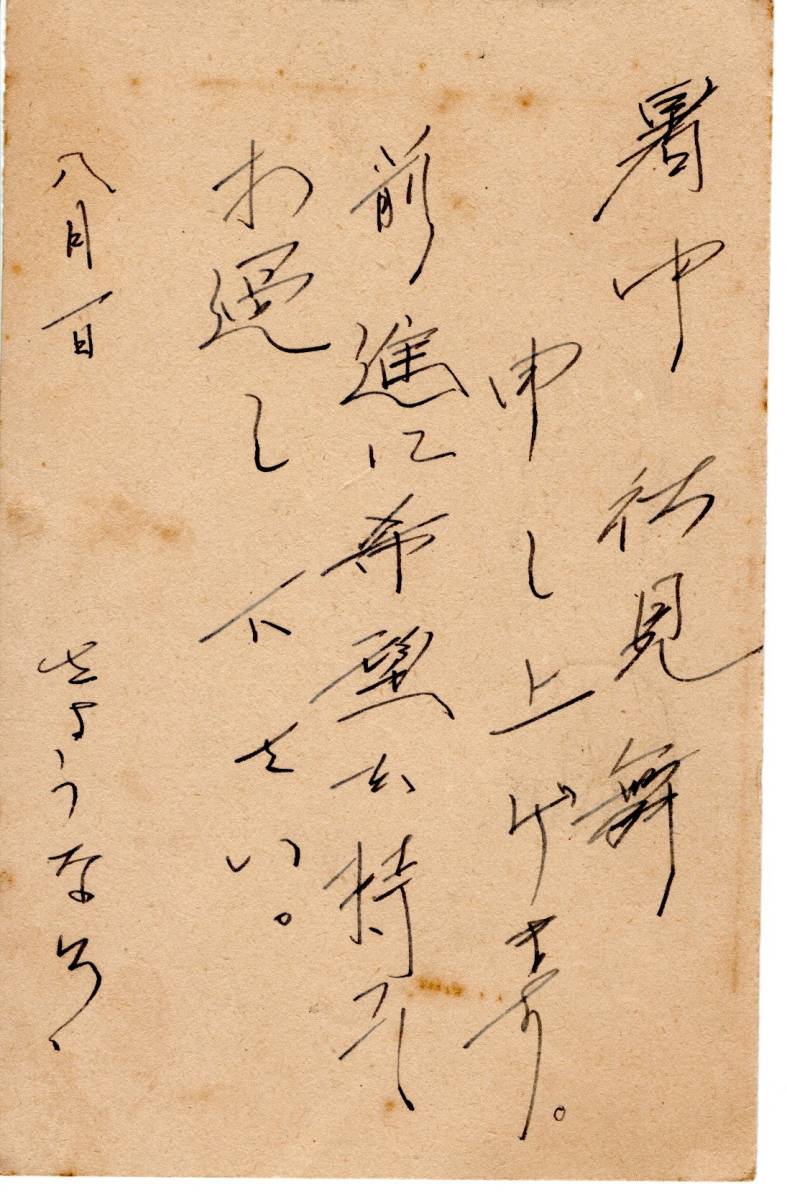 暑中御見舞
申し上げます。
前進に希望を持って
お過し下さい。
八月一日 さようなら、